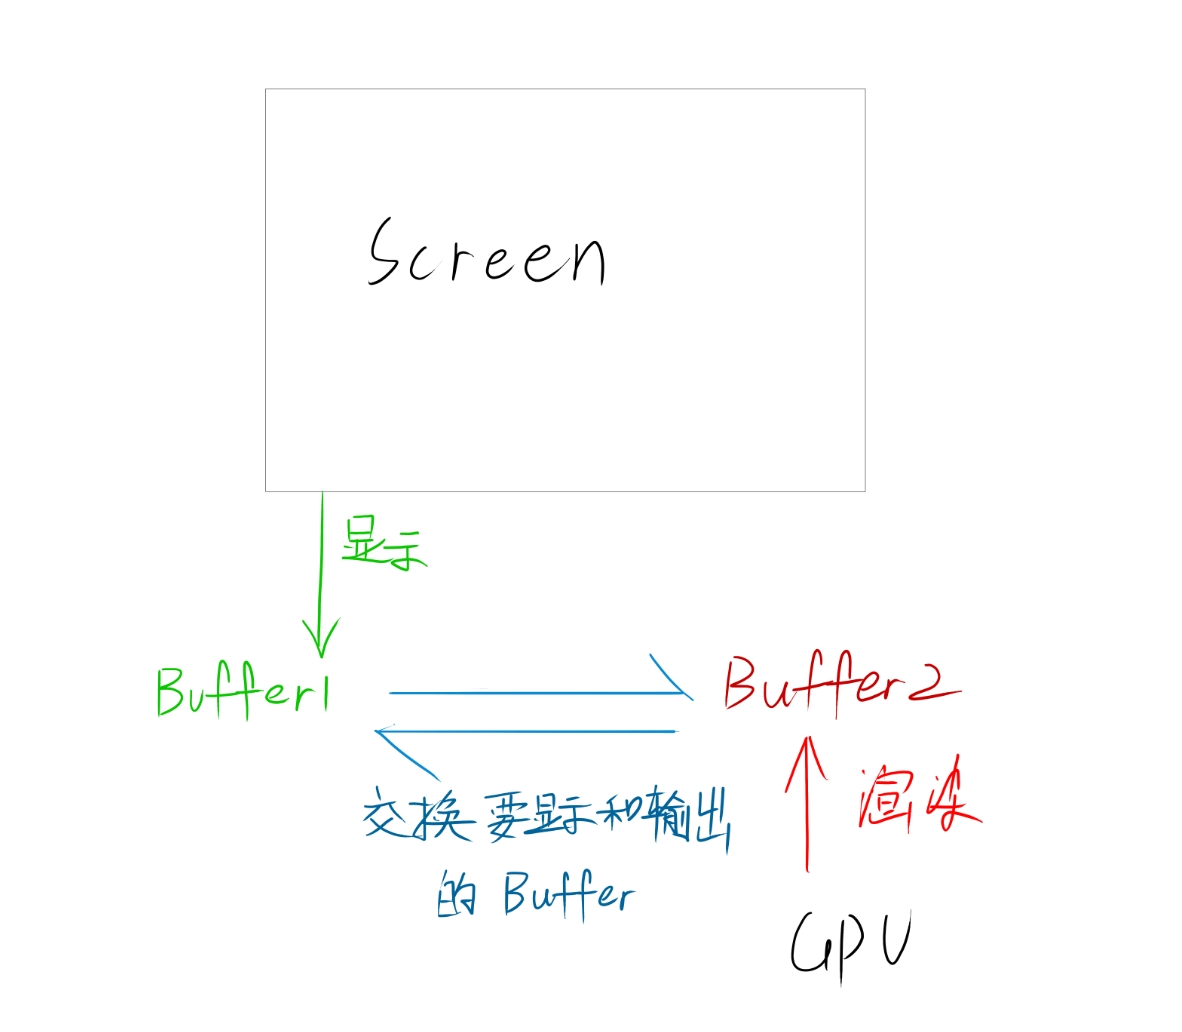 Screen
显示
Buffer1
Buffer2
交换要显示和输出
的 Buffer
渲染
GPU